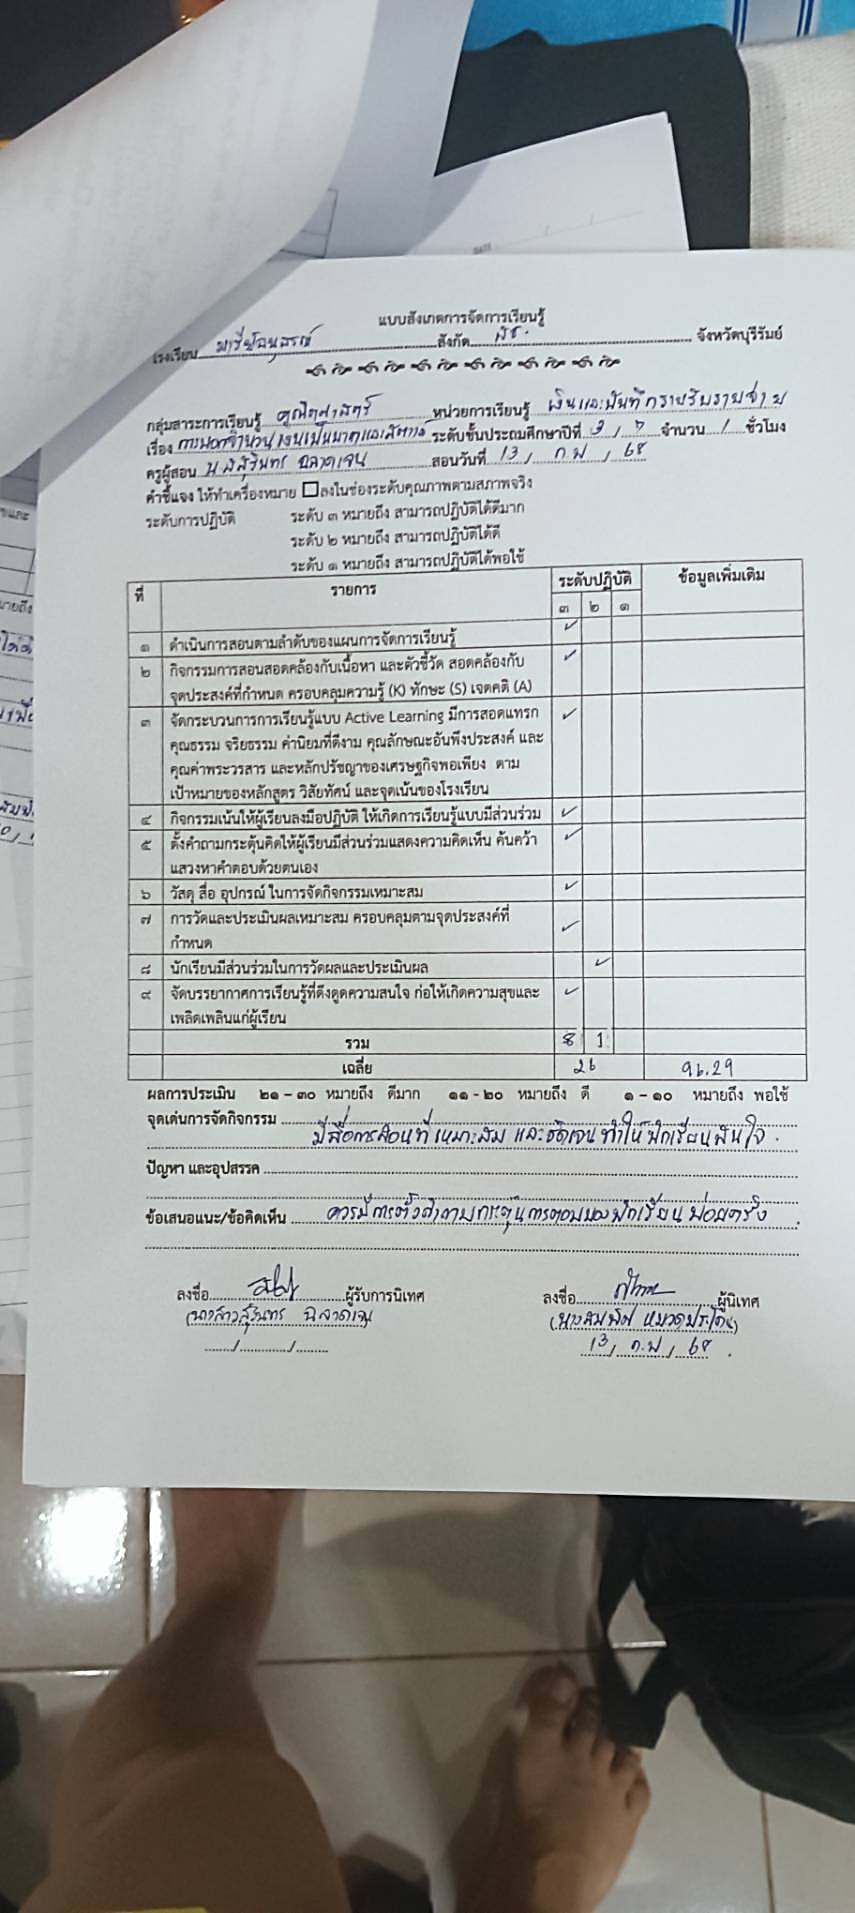 แบบสังเกตการจัดการเรียนรู้
โรงเรียน มารีย์อนุสรณ์ สังกัด สช. จังหวัดบุรีรัมย์
กลุ่มสาระการเรียนรู้ คณิตศาสตร์ หน่วยการเรียนรู้ เงินและบันทึกรายรับรายจ่าย
เรื่อง การบอกจำนวนเงินเป็นบาทและสตางค์ ระดับชั้นประถมศึกษาปีที่ 3 / 7 จำนวน 1 ชั่วโมง
ครูผู้สอน ฉลาดเจน สอนวันที่ 13 / ก.พ / 68
คำชี้แจง ให้ทำเครื่องหมาย ลงในช่องระดับคุณภาพตามสภาพจริง
ระดับการปฏิบัติ ระดับ ๓ หมายถึง สามารถปฏิบัติได้ดีมาก
ระดับ ๒ หมายถึง สามารถปฏิบัติได้ดี
ระดับ ๑ หมายถึง สามารถปฏิบัติได้พอใช้
ที่ รายการ ระดับปฏิบัติ ข้อมูลเพิ่มเติม
๓ ๒ ๑
๑ ดำเนินการสอนตามลำดับของแผนการจัดการเรียนรู้ ✓
๒ กิจกรรมการสอนสอดคล้องกับเนื้อหา และตัวชี้วัด สอดคล้องกับ ✓
จุดประสงค์ที่กำหนด ครอบคลุมความรู้ (K) ทักษะ (S) เจตคติ (A)
๓ จัดกระบวนการการเรียนรู้แบบ Active Learning มีการสอดแทรก ✓
คุณธรรม จริยธรรม ค่านิยมที่ดีงาม คุณลักษณะอันพึงประสงค์ และ
คุณค่าพระวรสาร และหลักปรัชญาของเศรษฐกิจพอเพียง ตาม
เป้าหมายของหลักสูตร วิสัยทัศน์ และจุดเน้นของโรงเรียน
๔ กิจกรรมเน้นให้ผู้เรียนลงมือปฏิบัติ ให้เกิดการเรียนรู้แบบมีส่วนร่วม ✓
๕ ตั้งคำถามกระตุ้นคิดให้ผู้เรียนมีส่วนร่วมแสดงความคิดเห็น ค้นคว้า ✓
แสวงหาคำตอบด้วยตนเอง
๖ วัสดุ สื่อ อุปกรณ์ ในการจัดกิจกรรมเหมาะสม ✓
๗ การวัดและประเมินผลเหมาะสม ครอบคลุมตามจุดประสงค์ที่ ✓
กำหนด
๘ นักเรียนมีส่วนร่วมในการวัดผลและประเมินผล ✓
๙ จัดบรรยากาศการเรียนรู้ที่ดึงดูดความสนใจ ก่อให้เกิดความสุขและ ✓
เพลิดเพลินแก่ผู้เรียน
รวม 8 1
เฉลี่ย 26 96.29
ผลการประเมิน ๒๑ – ๓๐ หมายถึง ดีมาก ๑๑ - ๒๐ หมายถึง ดี ๑ – ๑๐ หมายถึง พอใช้
จุดเด่นการจัดกิจกรรม
มีสื่อการสอนที่เหมาะสม และชัดเจน ทำให้นักเรียนสนใจ.
ปัญหา และอุปสรรค
ข้อเสนอแนะ/ข้อคิดเห็น ควรมีการตั้งคำถามกระตุ้นการตอบของนักเรียนบ่อยครั้ง
ลงชื่อ ผู้รับการนิเทศ ลงชื่อ ผู้นิเทศ
(นางสาว ฉลาดเจน (นาง
13 / ก.พ / 68